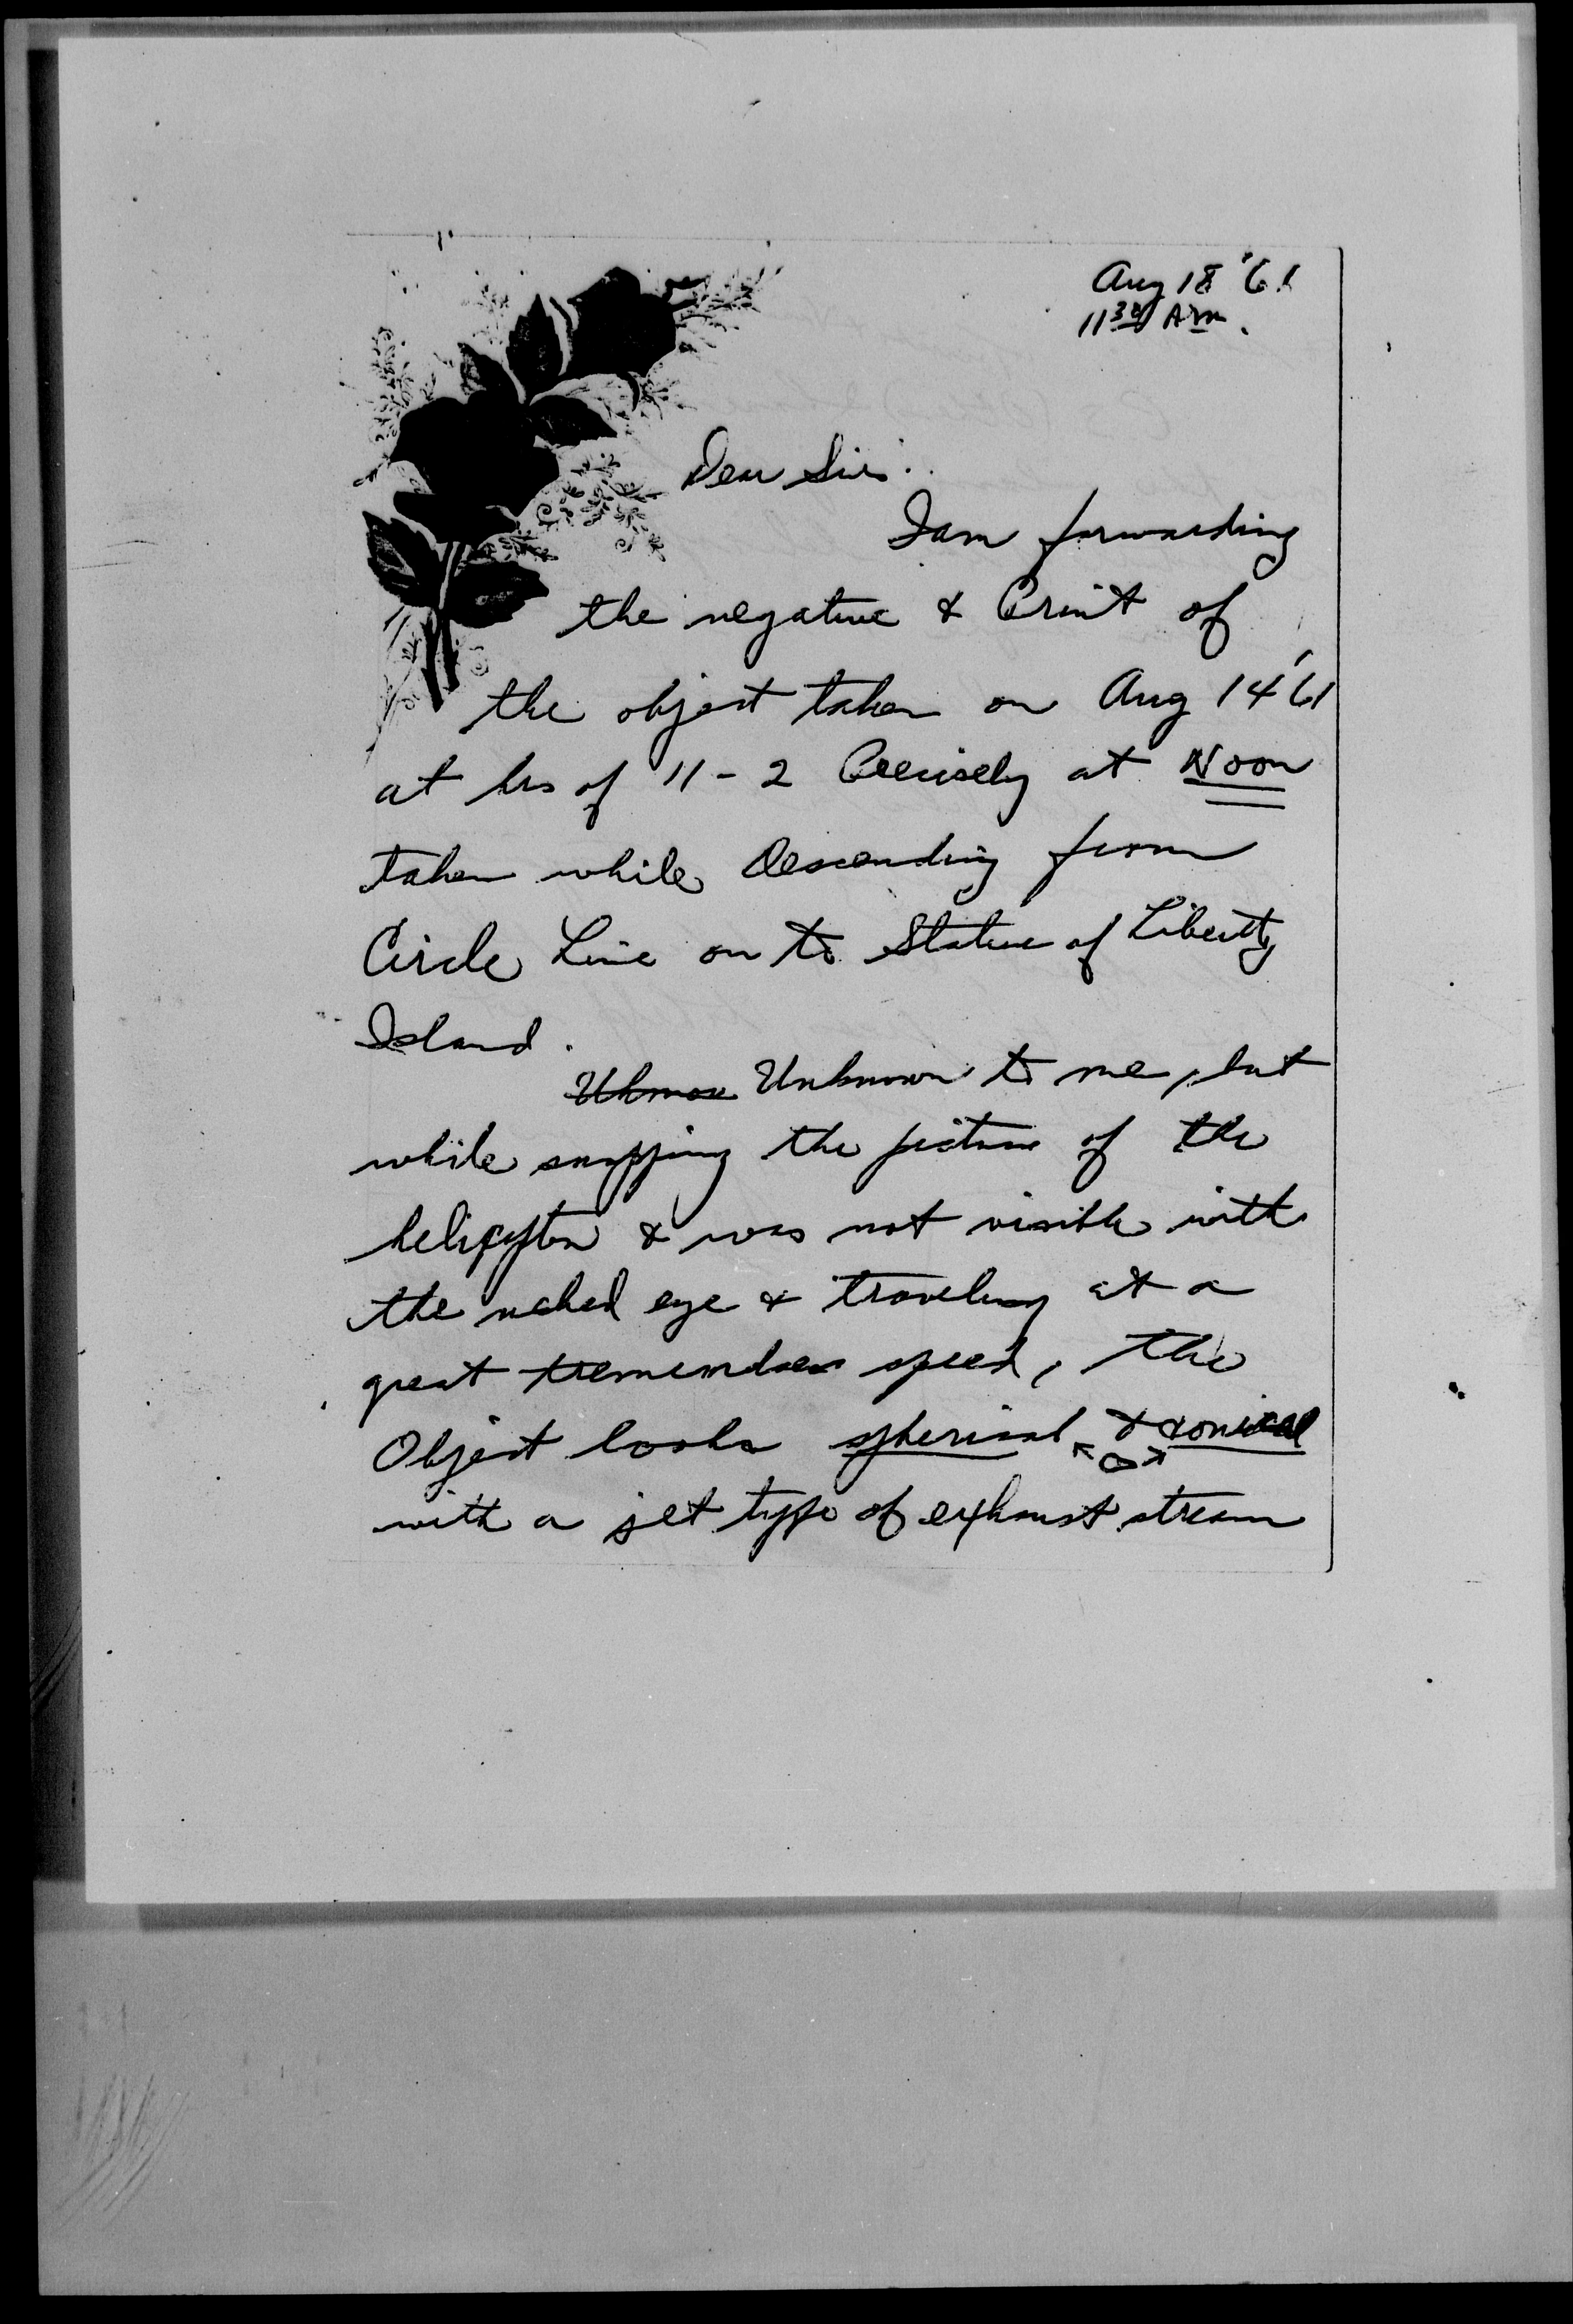 Aug 18 '61
11 30 AM.
Dear Sir:
I am forwarding
the negative & Print of
the object taken on Aug 14 '61
at hrs of 11-2 Precisely at Noon
taken while Descending from
Circle Line on to Statue of Liberty
Island.
Uknow Unknown to me, but
while snapping the picture of the
helicopter & was not visible with
the naked eye & traveling at a
great tremendous speed, the
Object looks spherical & conical
with a jet type of exhaust stream